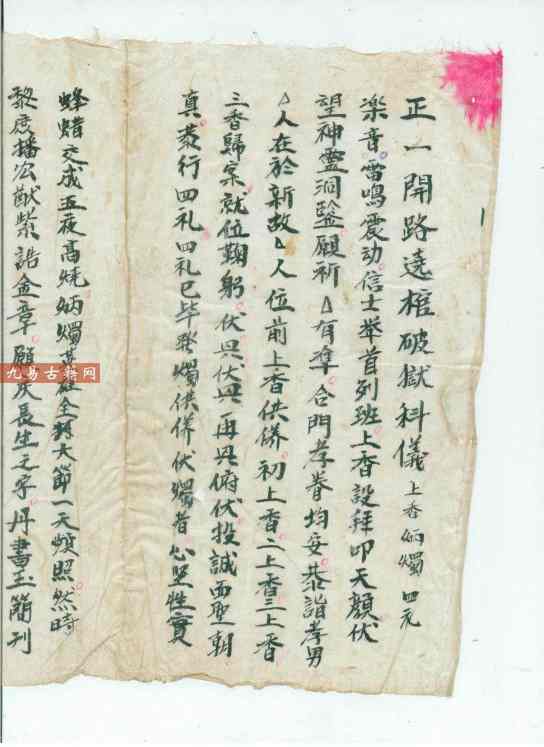 正一開路遶棺破獄科儀 上香炳燭 四元
楽音雷鳴震动信士举首列班上香設拜叩天顔伏
望神灵洞鑒願祈△有準合門孝眷均安恭詣孝男
△人在於新故△人位前上香供併初上香二上香三上香
三香歸宗就位鞠躬伏㒷伏㒷再㒷俯伏投誠面聖朝
真恭行四礼四礼已毕燭供併伏燭者心坚性實
蜂蜡交成五夜高燒炳燭全大節一天煩照然時
黎庶播公猷紫誥金章願庆長生之字丹書玉簡刊
九易古籍网